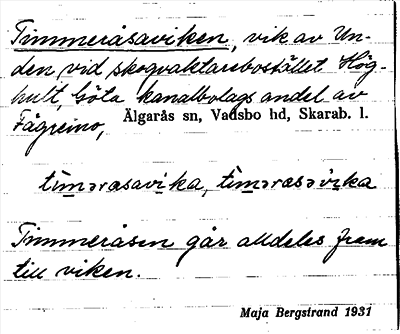 Timmeråsaviken, vik av Un-
den vid skogvaktarebostället Hög-
hult, Göta kanalbolags andel av
Fägremo, Älgarås sn, Vadsbo hd, Skarab. l.
tìmərasavi̱ka, tìmərasəvi̱ka
Timmeråsen går alldeles fram
till viken.
Maja Bergstrand 1931